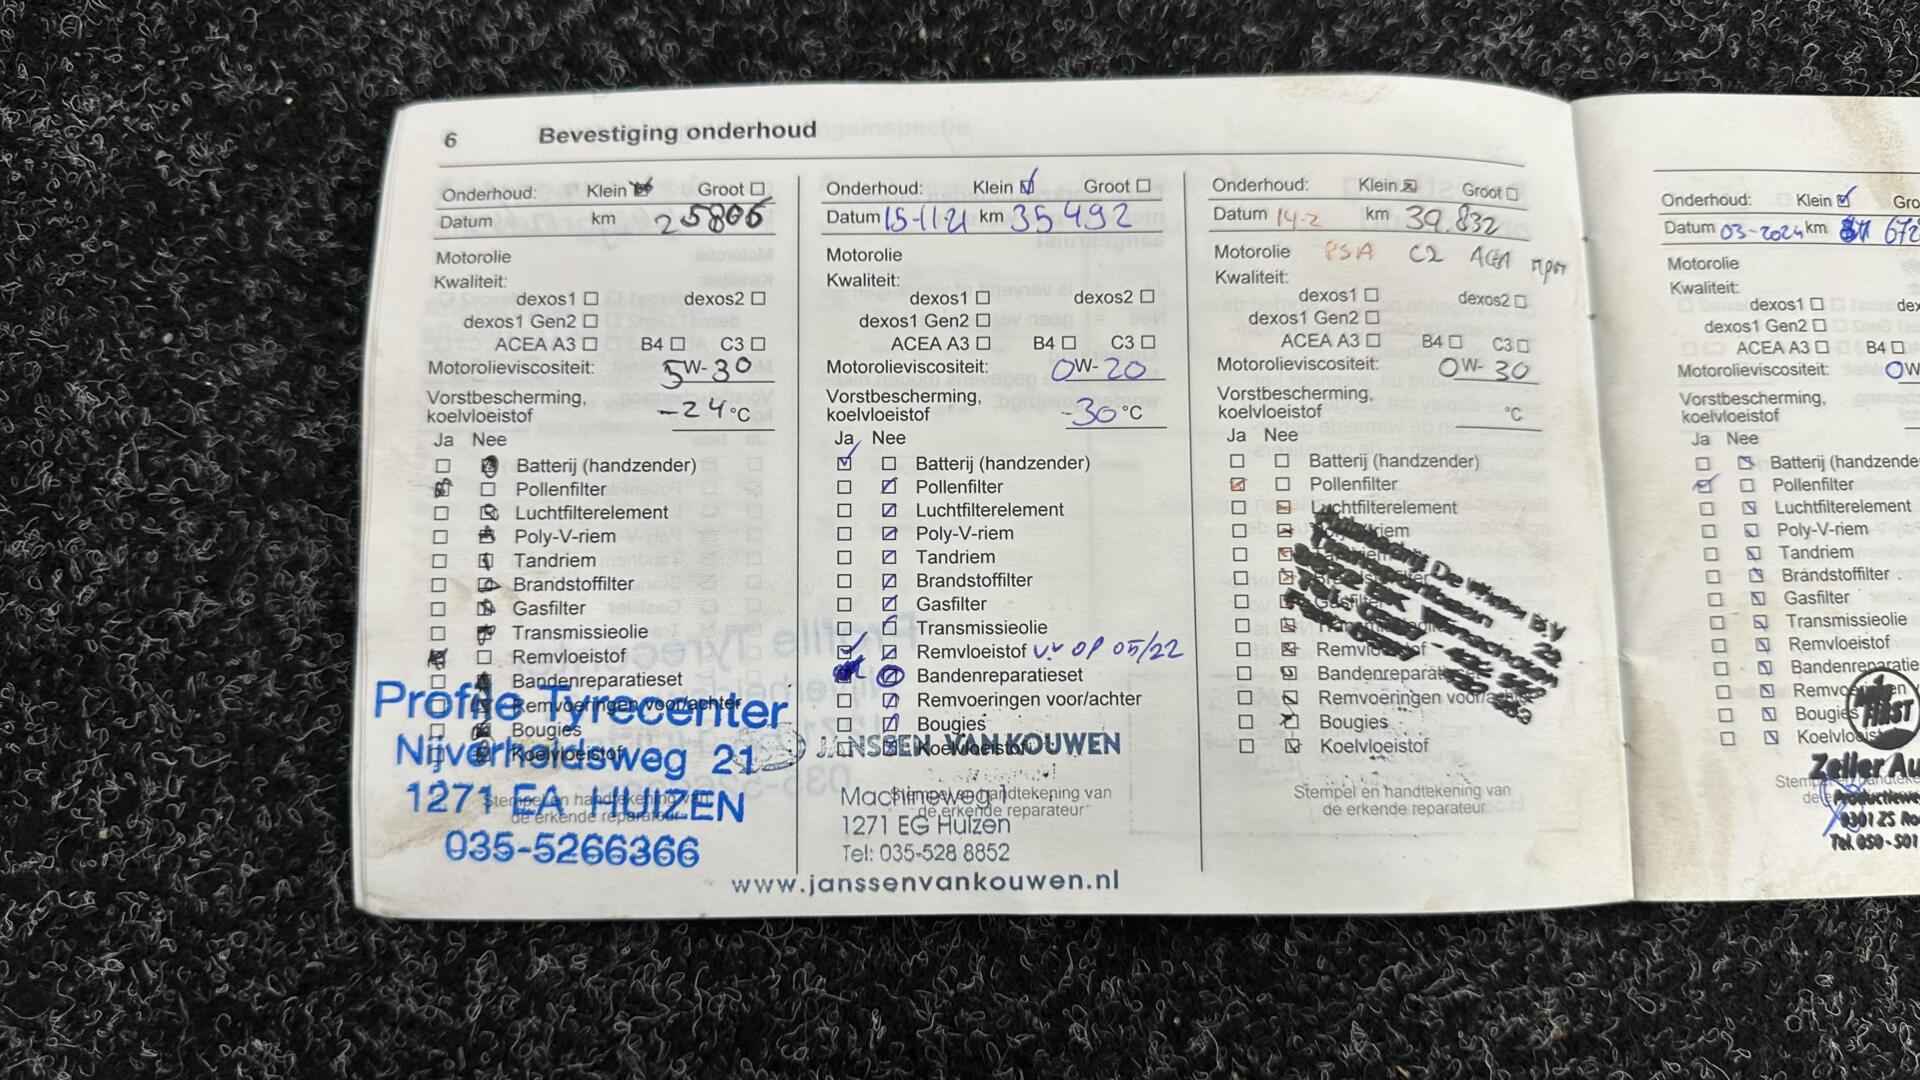 6 Bevestiging onderhoud
Onderhoud: Klein Groot
Datum km 25806
Motorolie
Kwaliteit:
dexos1 dexos2
dexos1 Gen2
ACEA A3 B4 C3
Motorolieviscositeit: 5W-30
Vorstbescherming,
koelvloeistof -24 °C
Ja Nee
Batterij (handzender)
Pollenfilter
Luchtfilterelement
Poly-V-riem
Tandriem
Brandstoffilter
Gasfilter
Transmissieolie
Remvloeistof
Bandenreparatieset
Remvoeringen voor/achter
Bougies
Koelvloeistof
Stempel en handtekening van
de erkende reparateur
Profile Tyrecenter
Nijverheidsweg 21
1271 EA HUIZEN
035-5266366
Onderhoud: Klein Groot
Datum 15-11-21 km 35492
Motorolie
Kwaliteit:
dexos1 dexos2
dexos1 Gen2
ACEA A3 B4 C3
Motorolieviscositeit: 0W-20
Vorstbescherming,
koelvloeistof -30 °C
Ja Nee
Batterij (handzender)
Pollenfilter
Luchtfilterelement
Poly-V-riem
Tandriem
Brandstoffilter
Gasfilter
Transmissieolie
Remvloeistof v.v op 05/22
Bandenreparatieset
Remvoeringen voor/achter
Bougies
Koelvloeistof
Stempel en handtekening van
de erkende reparateur
JANSSEN VAN KOUWEN
Machineweg 1
1271 EG Huizen
Tel: 035-528 8852
www.janssenvankouwen.nl
Onderhoud: Klein Groot
Datum 14-2 km 39.832
Motorolie PSA C2
Kwaliteit:
dexos1 dexos2
dexos1 Gen2
ACEA A3 B4 C3
Motorolieviscositeit: 0W-30
Vorstbescherming,
koelvloeistof °C
Ja Nee
Batterij (handzender)
Pollenfilter
Luchtfilterelement
Poly-V-riem
Tandriem
Brandstoffilter
Gasfilter
Transmissieolie
Remvloeistof
Bandenreparatieset
Remvoeringen voor/achter
Bougies
Koelvloeistof
Stempel en handtekening van
de erkende reparateur
Onderhoud: Klein Gro
Datum 03-2024 km 672
Motorolie
Kwaliteit:
dexos1 dex
dexos1 Gen2
ACEA A3 B4
Motorolieviscositeit: 0W
Vorstbescherming,
koelvloeistof
Ja Nee
Batterij (handzende
Pollenfilter
Luchtfilterelement
Poly-V-riem
Tandriem
Brandstoffilter
Gasfilter
Transmissieolie
Remvloeistof
Bandenreparatie
Remvoeringen
Bougies
Koelvloeist
FIRST
Zeller Au
Productiewe
9301 ZS Ro
Tel. 050-501